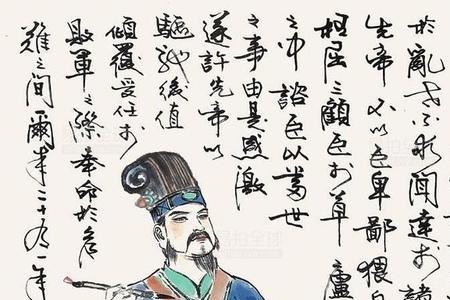 於亂世不求聞達於諸
先帝不以臣卑鄙猥自
枉屈三顧臣於草廬
之中諮臣以當世
之事由是感激
遂許先帝以
驅馳後值
傾覆受任於
敗軍之際奉命於危
難之間爾来二十有一年